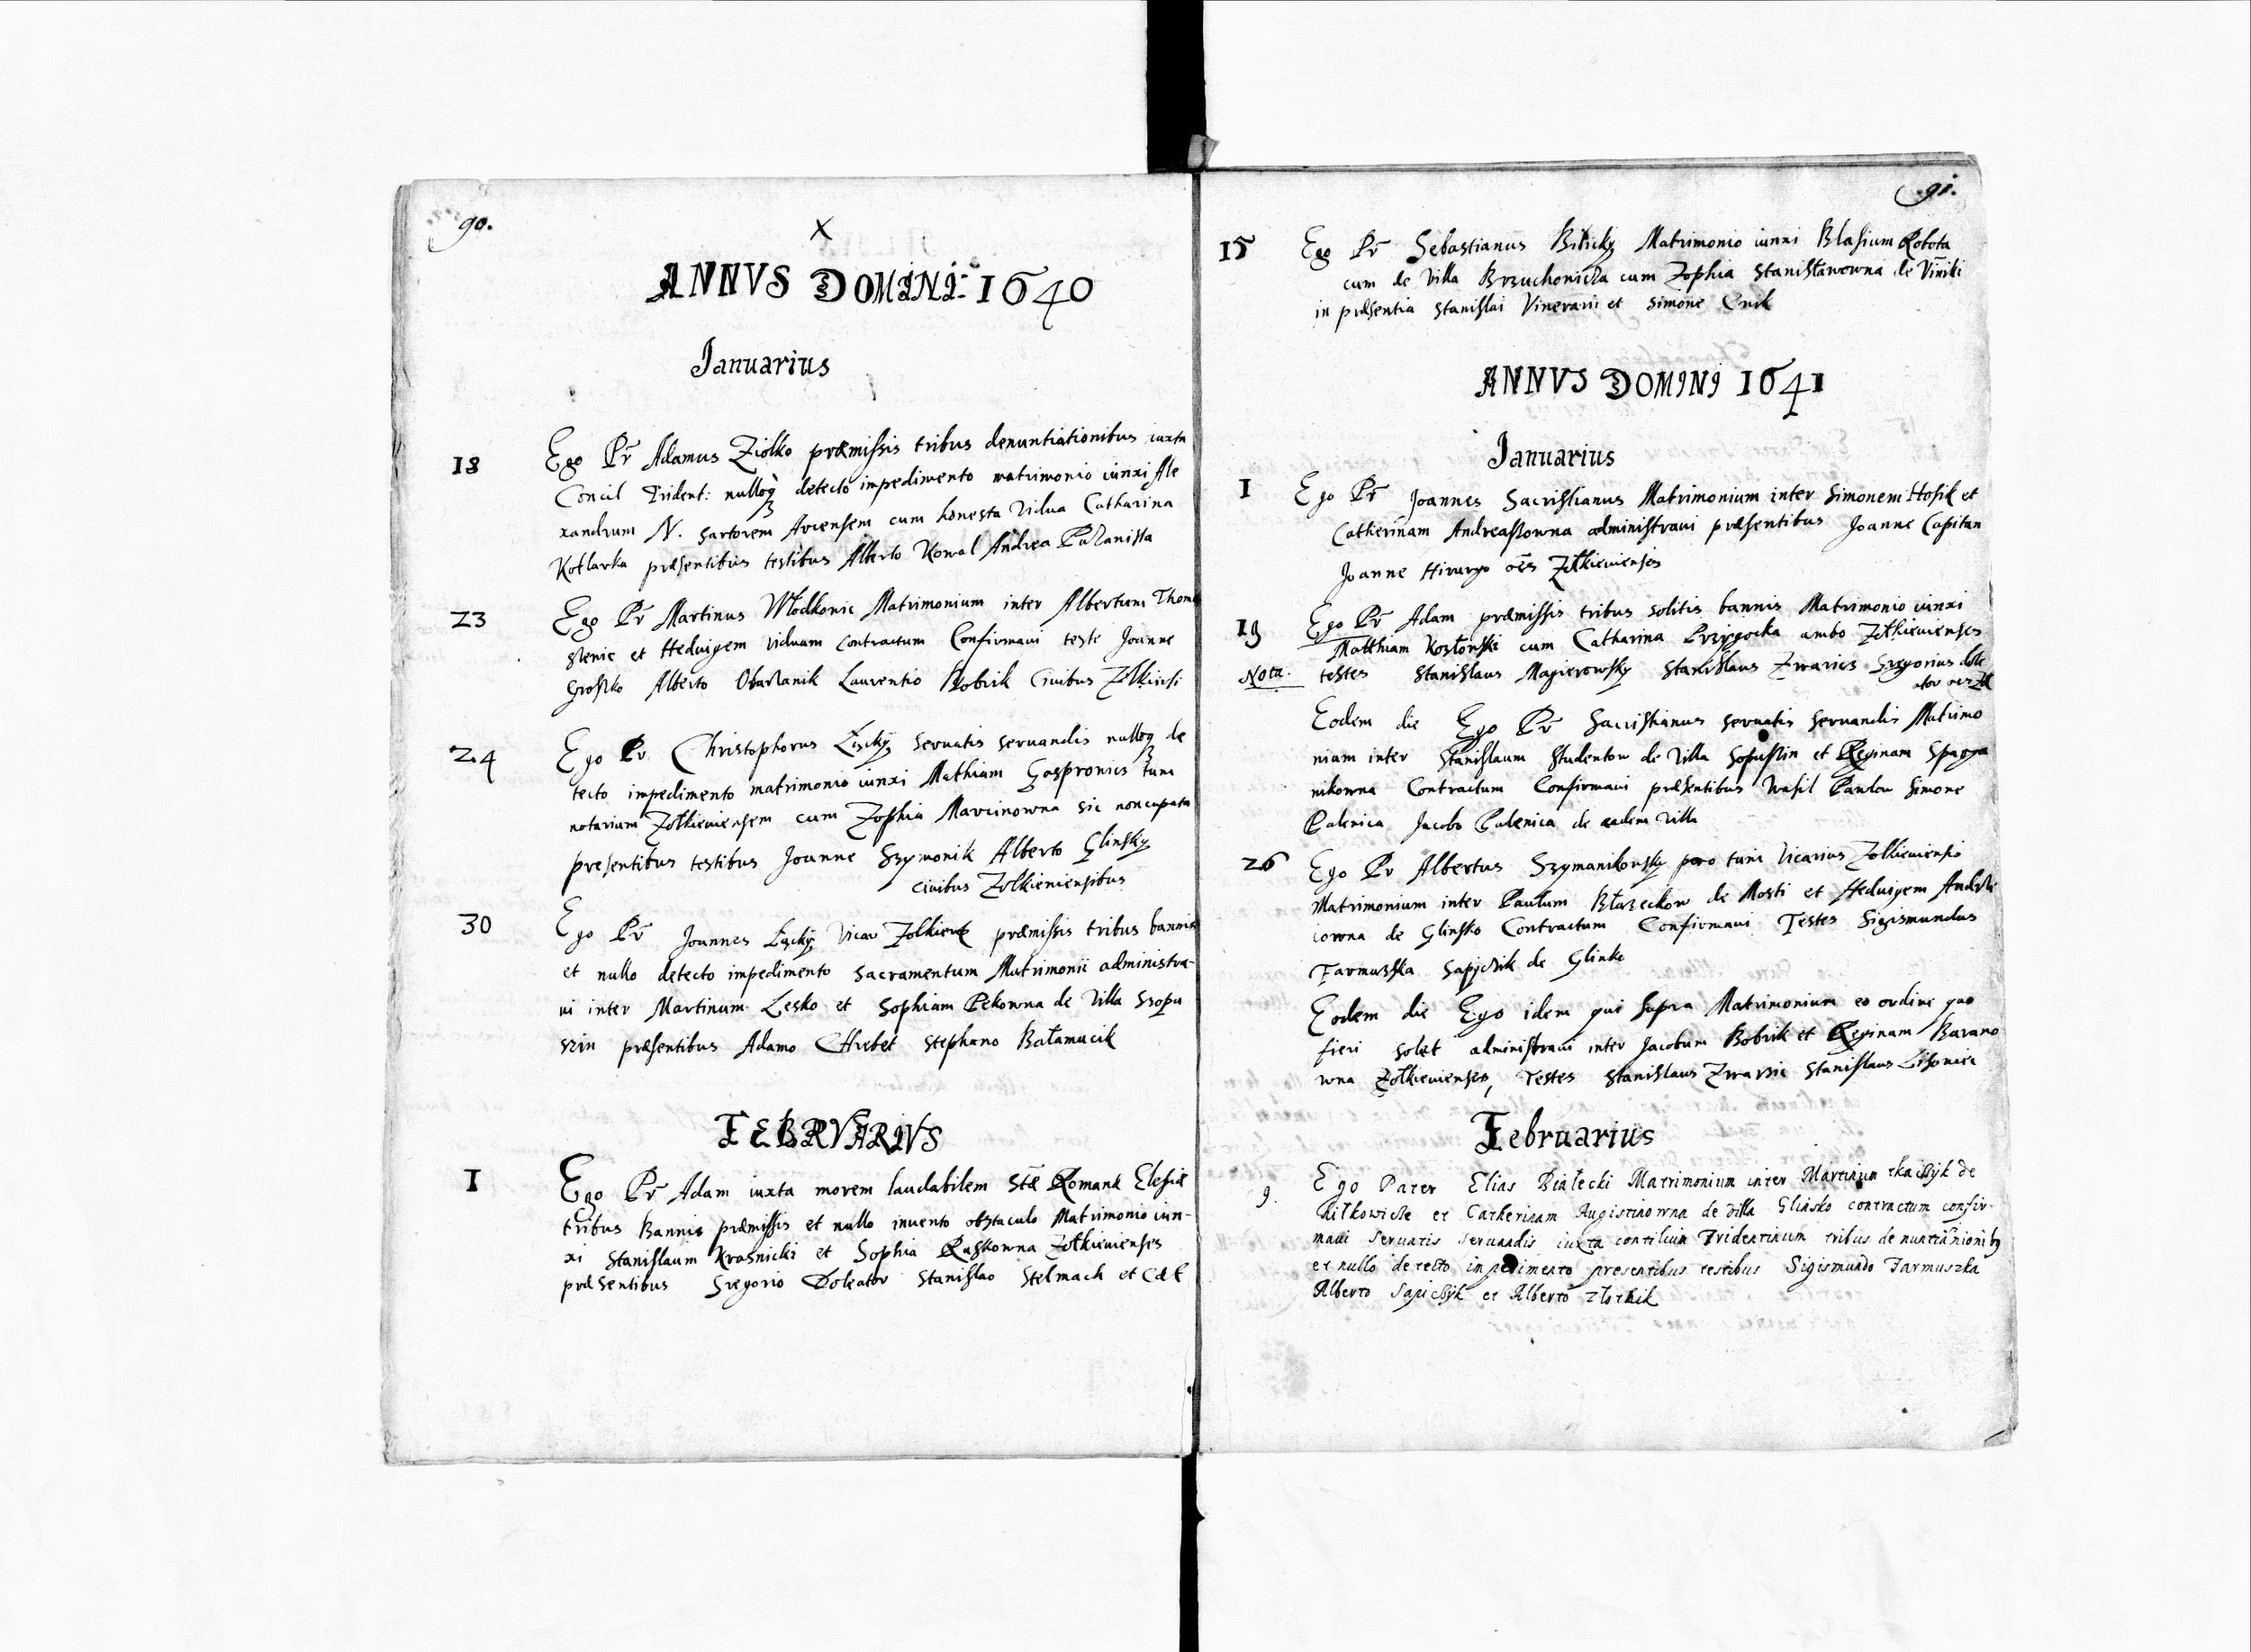 90.
X
ANNVS DOMINI: 1640
Ianuarius
18 Ego Pr Adamus Ziolko præmissis tribus denuntiationibus iuxta
Concil Trident: nulloq detecto impedimento matrimonio iunxi Ale
xandrum N. sartorem Arcensem cum honesta vidua Catharina
Kotlarka præsentibus testibus Alberto Kowal Andrea
23 Ego Pr Martinus Włodkonic Matrimonium inter Albertum Thom
et Heduigem viduam contractum Confirmaui teste Joanne
Groszko Alberto Laurentio Bobrik Ciuibus
24 Ego Pr Christophorus Łęcky seruatis seruandis nulloq de
tecto impedimento matrimonio iunxi Mathiam tum
notarium Zołkieuiensem cum Zophia Marcinowna sic noncupata
presentibus testibus Joanne Szymonik Alberto Glinsky
ciuibus Zolkieniensibus
30 Ego Pr Joannes Łęcky Vicar præmissis tribus bannis
et nullo detecto impedimento Sacramentum Matrimonii administra-
ui inter Martinum Lesko et Sophiam Pekowna de Villa Szopu
szin præsentibus Adamo Chrebet Stephano Bałamucik
FEBRVARIVS
1 Ego Pr Adam iuxta morem laudabilem Stæ Romanæ Elesiæ
tribus Bannis præmissis et nullo inuento obstaculo Matrimonio iun-
xi Stanislaum Krasnicki et Sophia Ruskowna Zołkieuienses
præsentibus Gregorio Doleator Stanislao Stelmach et Cæt
91.
15 Ego Pr Sebastianus Matrimonio iunxi Blasium Robota
cum de Villa cum Zophia Stanisławowna de Viniki
in præsentia Stanislai et Simone
ANNVS DOMINI 1641
Ianuarius
1 Ego Pr Joannes Sacristianus Matrimonium inter Simonem Hosik et
Catherinam administraui præsentibus Joanne Capitan
Joanne Hirurgo oes Zołkieuienses
19 Ego Pr Adam præmissis tribus solitis bannis Matrimonio iunxi
Matthiam Kozłowski cum Catharina Przygocka ambo Zołkieuienses
Nota. testes Stanislaus Magierowsky Stanislaus Gregorius dole
ator
Eodem die Ego Pr Sacristianus seruatis seruandis Matrimo
nium inter Stanislaum Studentow de Villa et Reginam Spaga
nikowna Contractum Confirmaui præsentibus Wasil Pawlow Simone
Palenica Jacobo Palenica de eadem Villa
26 Ego Pr Albertus Szymanikowsky pro tunc Vicarius Zolkieuiensis
Matrimonium inter Paulum Błazeckow de Mosti et Heduigem Andrze
iowna de Glinsko Contractum Confirmaui Testes Sigismundus
Farmuszka de
Eodem die Ego idem qui supra Matrimonium eo ordine quo
fieri solet administraui inter Jacobum Bobrik et Reginam Barano
wna Zołkieuienses, Testes Stanislaus Stanislaus
Februarius
9. Ego Pater Elias Białecki Matrimonium inter Martinum de
et Catherinam Augustinowna de villa Glinsko contractum confir-
maui Seruatis Seruandis iuxta contilium Tridentinum tribus
et nullo detecto impedimento presentibus testibus Sigismundo Farmuszka
Alberto et Alberto